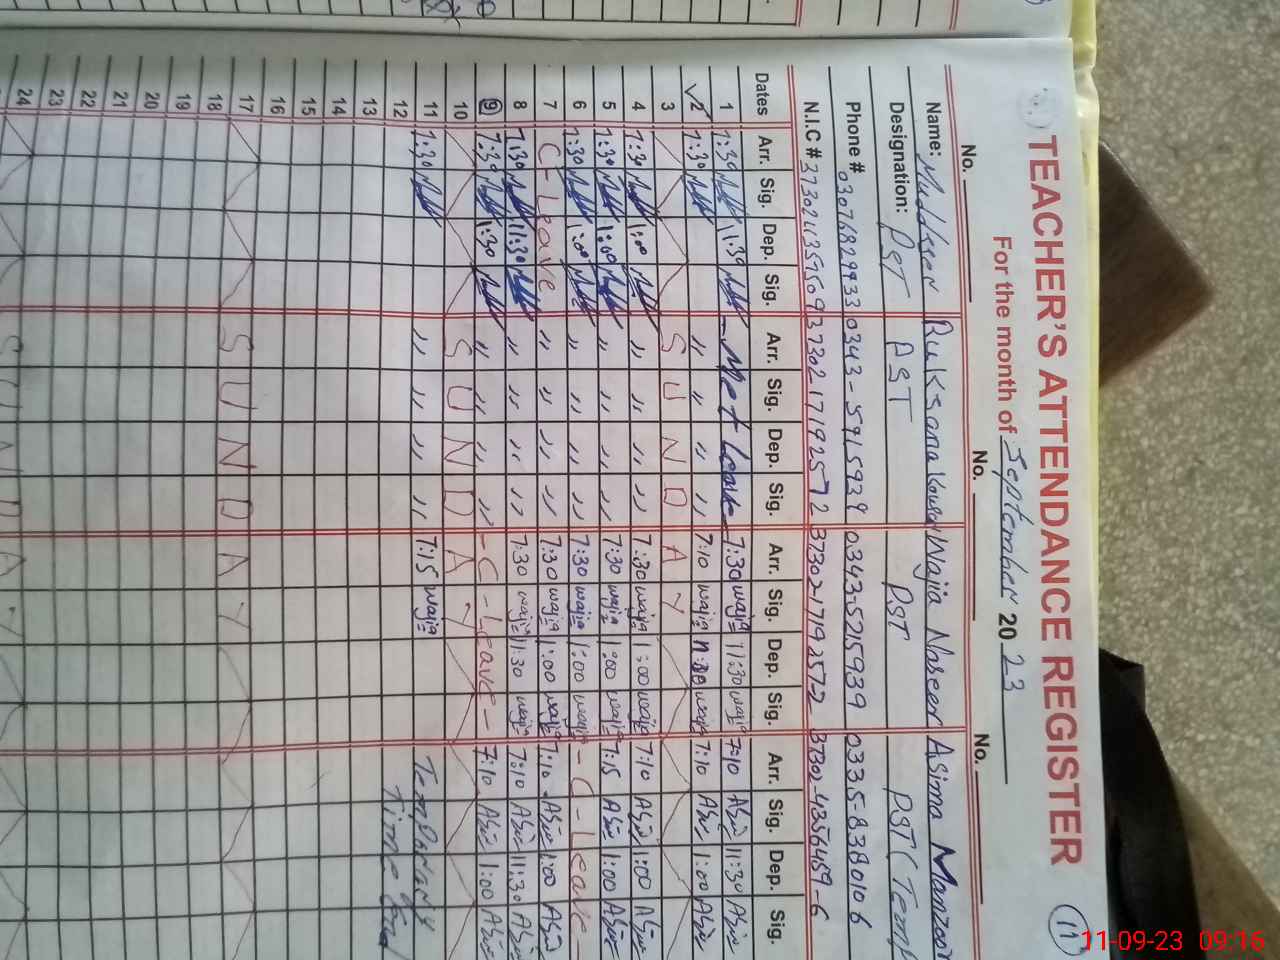 TEACHER'S ATTENDANCE REGISTER
11
For the month of September 2023
No. No. No.
Name: Mudasser Ruksana Kousar Wajia Naseer Asima Manzoor
Designation: PST PST PST PST (Temp
Phone # 03076829933 0343-5915939 0343-5215939 0335-8380106
N.I.C # 3730211357509 3730217192572 3730217192572 37302-4356489-6
Dates Arr. Sig. Dep. Sig. Arr. Sig. Dep. Sig. Arr. Sig. Dep. Sig. Arr. Sig. Dep. Sig.
1 7:30 11:30 Met Leave 7:30 wajia 11:30 wajia 7:10 11:30
2 7:30 〃 〃 〃 〃 7:10 wajia wajia 7:10 1:00
3 S U N D A Y
4 7:30 1:00 〃 〃 〃 〃 7:30 wajia 1:00 wajia 7:10 1:00
5 7:30 1:00 〃 〃 〃 〃 7:30 wajia 1:00 wajia 7:15 1:00
6 7:30 1:00 〃 〃 〃 〃 7:30 wajia 1:00 wajia - C - Leave -
7 C - Leave 〃 〃 〃 〃 7:30 wajia 1:00 wajia 7:10 1:00
8 7:30 11:30 〃 〃 〃 〃 7:30 wajia 11:30 wajia 7:10 11:30
9 7:30 1:30 〃 〃 〃 〃 - C - Leave - 7:10 1:00
10 S U N D A Y
11 7:30 〃 〃 〃 〃 7:15 wajia Temparary
12 Time End
13
14
15
16
17 S U N D A Y
18
19
20
21
22
23
24 S U N D A Y
11-09-23 09:16